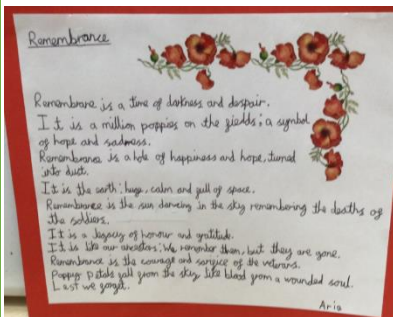 Remembrance
Remembrance is a time of darkness and despair.
It is a million poppies on the fields; a symbol
of hope and sadness.
Remembrance is a hole of happiness and hope, turned
into dust.
It is the earth; huge, calm and full of space.
Remembrance is the sun dancing in the sky remembering the deaths of
the soldiers.
It is a legacy of honour and gratitude.
It is like our ancestors; We remember them, but they are gone.
Remembrance is the courage and sacrifice of the veterans.
Poppy petals fall from the sky like blood from a wounded soul.
Lest we forget.
Aria